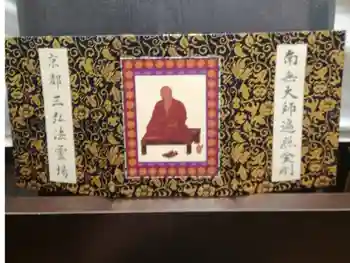 南無大師遍照金剛
京都三弘法霊場